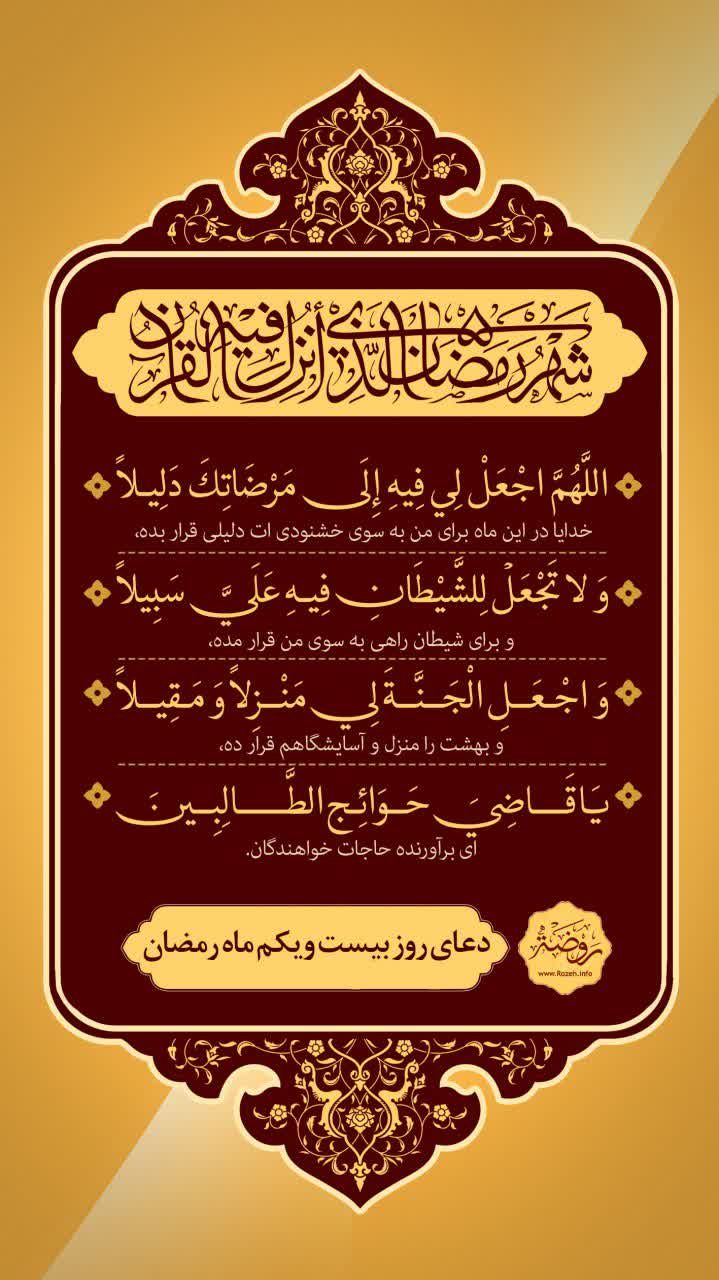 شهر رمضان الذي أنزل فيه القرآن
اللَّهُمَّ اجْعَلْ لِي فِيهِ إِلَى مَرْضَاتِكَ دَلِيلاً
خدایا در این ماه برای من به سوی خشنودی ات دلیلی قرار بده،
وَ لا تَجْعَلْ لِلشَّيْطَانِ فِيهِ عَلَيَّ سَبِيلاً
و برای شیطان راهی به سوی من قرار مده،
وَ اجْعَلِ الْجَنَّةَ لِي مَنْزِلاً وَ مَقِيلاً
و بهشت را منزل و آسایشگاهم قرار ده،
يَا قَاضِيَ حَوَائِجِ الطَّالِبِينَ
ای برآورنده حاجات خواهندگان.
دعای روز بیست و یکم ماه رمضان
روضة
www.Rozeh.info